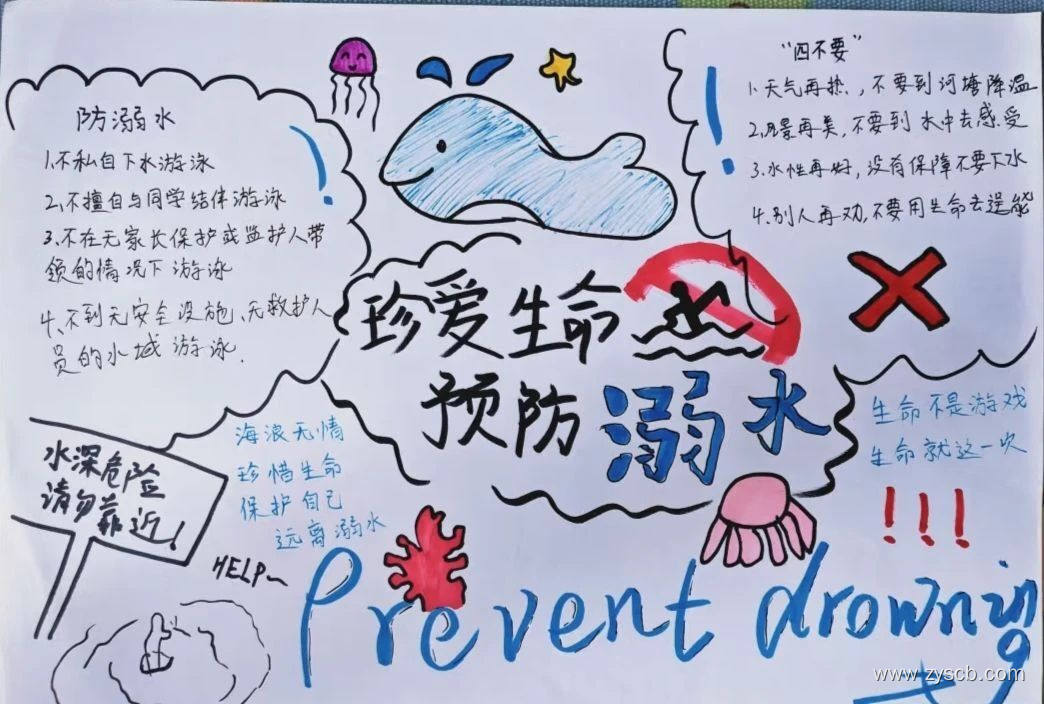 防溺水
1.不私自下水游泳
2.不擅自与同学结伴游泳
3.不在无家长保护或监护人带
领的情况下游泳
4、不到无安全设施、无救护人
员的水域游泳.
"四不要"
1.天气再热,不要到河塘降温
2.风景再美,不要到水中去感受
3.水性再好,没有保障不要下水
4.别人再劝,不要用生命去逞能
珍爱生命
预防溺水
水深危险
请勿靠近!
海浪无情
珍惜生命
保护自己
远离溺水
生命不是游戏
生命就这一次
!!!
HELP~
Prevent drowning
www.zyscb.com